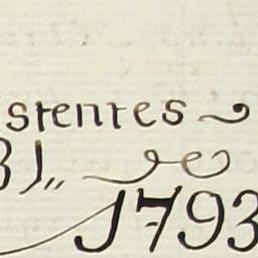 istentes
31,, de
1793